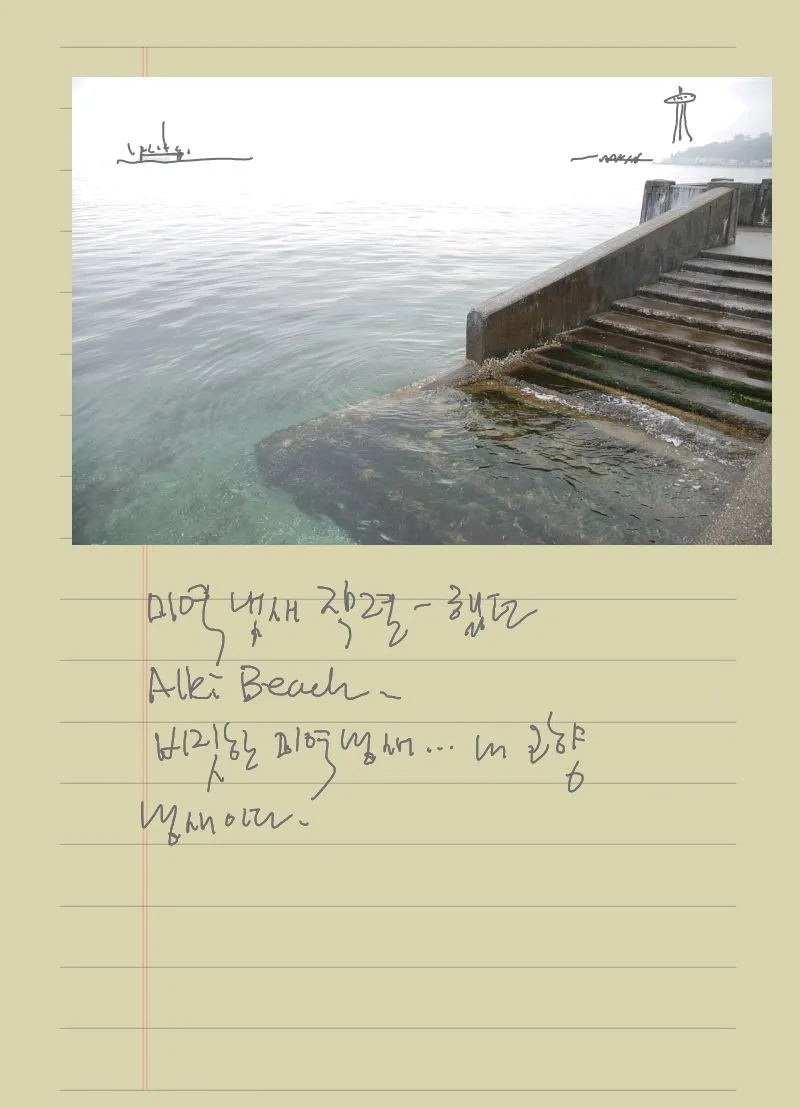 미역 냄새 작렬-했던
Alki Beach.
비릿한 미역 냄새... 내 고향
냄새이다.